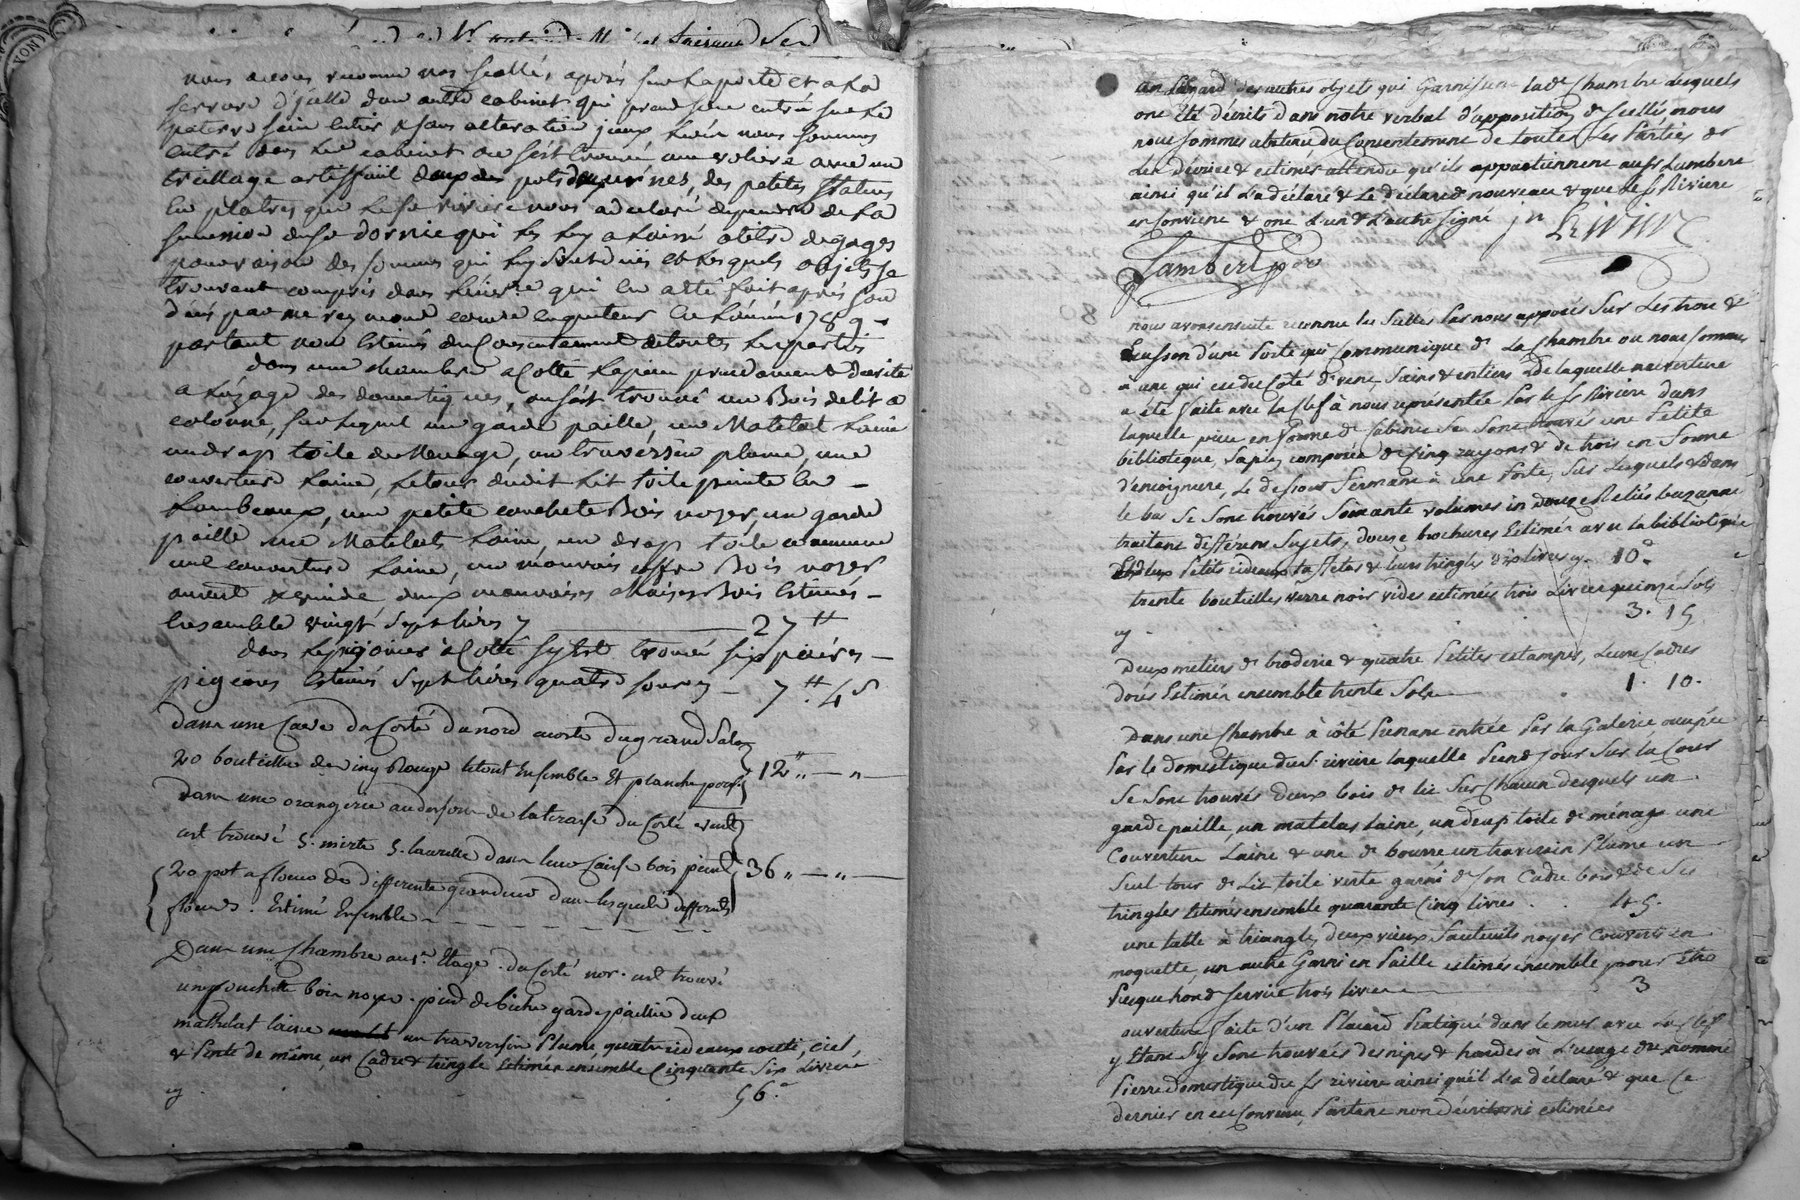 nous avons reconnu nos scellés, apposés sur la porte et a la
serrure d'icelle d'un autre cabinet qui prend son entrée sur le
sain entier & sans alteration, iceux levés nous sommes
entré dans led cabinet ou s'est trouvé une voliere avec un
treillage artifficiel deux des pots des petites statues
en platre que le sr riviere nous a declaré dependre de la
sucession du sr qui les luy a laissé a titre de gages
pour raison des sommes qui luy sont dües et lesquels objets se
trouvant compris dans qui en a été fait après son
décés par enqueteur en 1789 -
partant non estimés du consentement de toutes les parties
dans une chambre a coté prenand droite
a l'uzage des domestiques, on s'est trouvé un Bois de lit a
colonne, sur lequel un garde paille, un Matelat Laine
un drap toile de menage, un traversin plume, une
couverture Laine, le tour dudit Lit toile peinte en -
Lambeaux, une petite couchete Bois noyer, un garde
paille un Matelats Laine, un drap toile commune
une couverture Laine, un mauvais coffre Bois noyer
deux mauvaises chaises Bois Estimés -
Ensemble vingt sept livres cy 27 ₶
dans le pijonier à Cotté s'y est trouvé six paires -
pigeons Estimés sept livres quatre sous cy - 7 ₶ 4 s
Dans une Cave du Costé du nord a costé du grand Salon
20 bouteilles de vin Rouge le tout Ensemble Et planche 12 " - " -
Dans une orangerie au dessous de la terasse du Costé
est trouvé 5. mirte 5. laurette dans leur Caisse bois peint
20 pot a fleurs de differente grandeur dans lesquels differents 36 " - " -
fleurs. Estimé Ensemble -
Dans une Chambre au 1er. Etage. du Costé nor. est trouvé
une couchette bois noyer. pied de biche garde paillie deux
mathelat laine un traversin Plume, quatre rideaux ciel,
& Pente de même, un Cadre & tringle Estimés ensemble Cinquante Six Livres
cy 56.
des autres objets qui Garnissent lade Chambre lesquels
ont été décrits dans notre verbal d'apposition de scellés nous
nous sommes abstenu du Consentement de toutes les Parties de
Les décrire & estimer attendu qu'ils appartiennent aud sr Lambert
ainsi qu'il L'a déclaré & Le déclare de nouveau & que le sr Riviere
en Convient & ont L'un & L'autre Signé
Lambert
nous avons ensuite reconnu les scellés Par nous apposés Sur Les trou &
d'une Porte qui Communique de La Chambre ou nous sommes
à une qui est du Coté d'vent, Sains & entiers & de laquelle ouverture
a été faite avec la clef à nous représentée Par le Sr Riviere dans
laquelle piece en Forme de Cabinet Se Sont trouvés une Petite
biblioteque, Sapin, composée de Cinq rayons & de trois en Forme
d'encoignure, Le dessous Fermant à une Porte, Sur Lesquels & dans
le bas Se Sont trouvés Soixante volumes in douze Reliés bazanne
traitant différens Sujets, douze brochures Estimés avec la biblioteque
& deux Petits rideaux taffetas & leurs tringles dix livres cy. 10.
trente bouteilles verre noir vides estimées trois Livres quinze Sols
cy. 3. 15
Deux metiers de broderie & quatre Petites estampes, Leurs Cadres
dorés Estimés ensemble trente Sols 1. 10.
Dans une Chambre à côté Prenant entrée Par la Galerie occupée
Par le domestique dud Sr. riviere laquelle Prend Jour Sur la Cour
Se Sont trouvés Deux bois de lit Sur Chacun desquels un
garde paille, un matelas Laine, un drap toile de ménage une
Couverture Laine & une de bourre un traversin Plume un
Seul tour de Lit toile verte garni de Son Cadre bois & de Ses
tringles Estimés ensemble quarante Cinq livres . . 45.
une table à triangle, deux vieux Fauteuils noyer Couverts en
moquette, un autre Garni en Paille estimés ensemble pour Etre
Presque hors de Service trois livres 3
ouverture Faite d'un Placard Pratiqué dans le mur avec La Clef
y Etant S'y Sont trouvées des nipes & hardes à L'usage du nommé
Pierre domestique du Sr riviere ainsi qu'il L'a déclaré & que Ce
dernier en est Convenu, Partant non décrites ni estimées